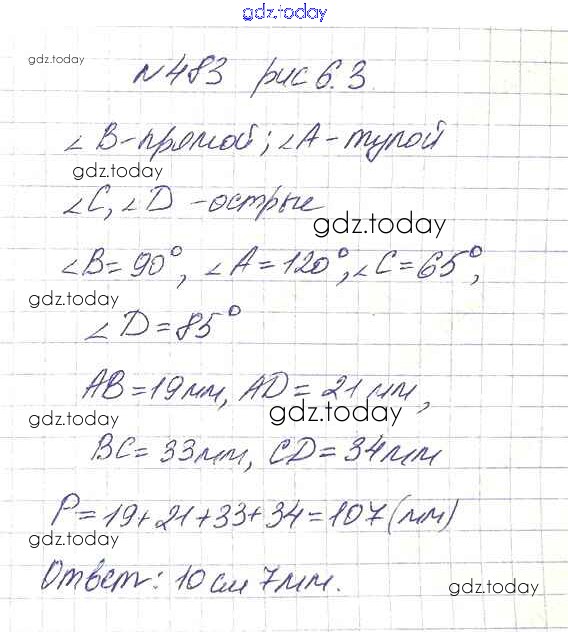 gdz.today
gdz.today
№483 рис 6.3.
∠B-прямой; ∠A-тупой
gdz.today
∠C, ∠D - острые
gdz.today
∠B=90°, ∠A=120°, ∠C=65°,
gdz.today
∠D=85°
AB=19мм, AD=21мм,
gdz.today
gdz.today
BC=33мм, CD=34мм
P=19+21+33+34=107(мм)
gdz.today
Ответ: 10см 7мм.
gdz.today